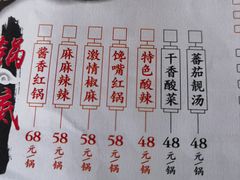 酱香红锅
68元/锅
麻麻辣辣
58元/锅
激情椒麻
58元/锅
馋嘴红锅
58元/锅
特色酸辣
48元/锅
干香酸菜
48元/锅
番茄靓汤
48元/锅